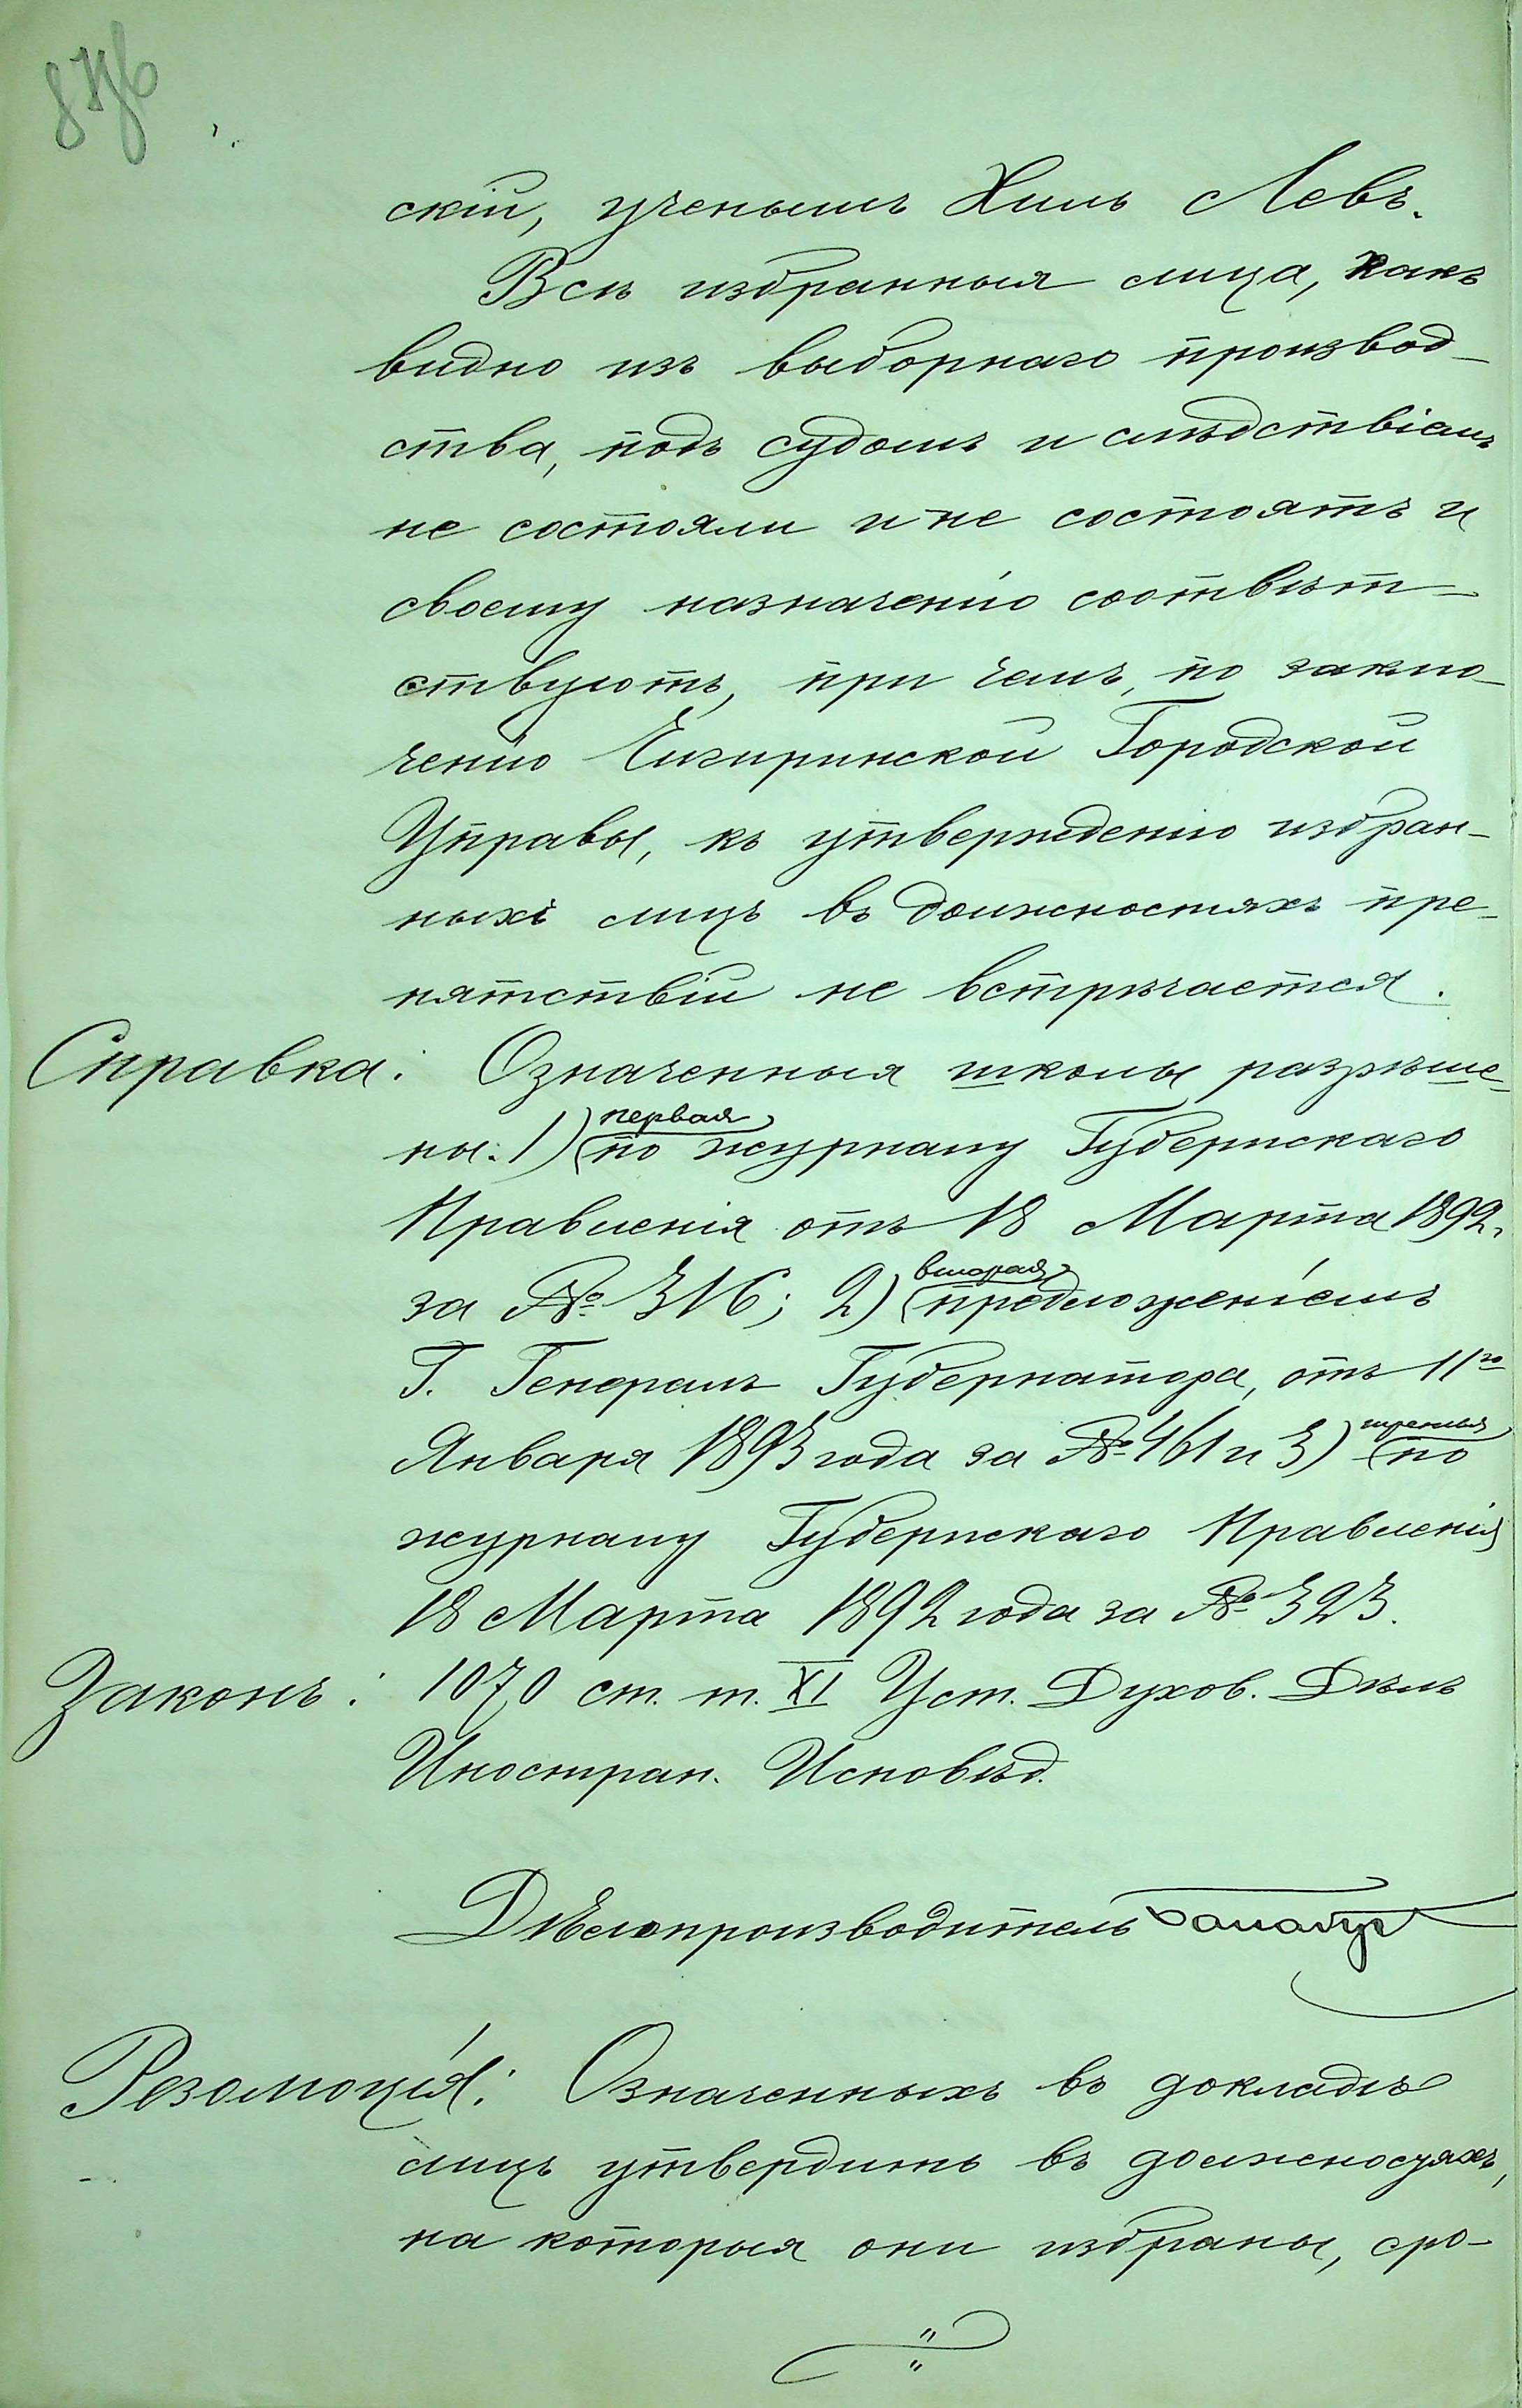 скій, ученымъ Хиль Левъ.
Всѣ избранныя лица, какъ
видно изъ выборнаго производ-
ства, подъ судомъ и слѣдствіемъ
не состояли и не состоятъ и
своему назначенію соотвѣт-
ствуютъ, при чемъ, по заклю-
ченію Чигиринской Городской
Управы, къ утвержденію избран-
ныхъ лицъ въ должностяхъ пре-
пятствій не встрѣчается.
Справка: Означенныя школы разрѣше-
ны: 1) первая по журналу Губернскаго
Правленія отъ 18 Марта 1892 г.
за № 316; 2) вторая предложеніемъ
Г. Генералъ Губернатора, отъ 11го
Января 1893 года за № 461 и 3) третья по
журналу Губернскаго Правленія
18 Марта 1892 года за № 323.
Законъ: 1070 ст. т. XI Уст. Духов. Дѣлъ
Иностран. Исповѣд.
Дѣлопроизводитель
Резолюція: Означенныхъ въ докладѣ
лицъ утвердить въ должностяхъ,
на которыя они избраны, сро-